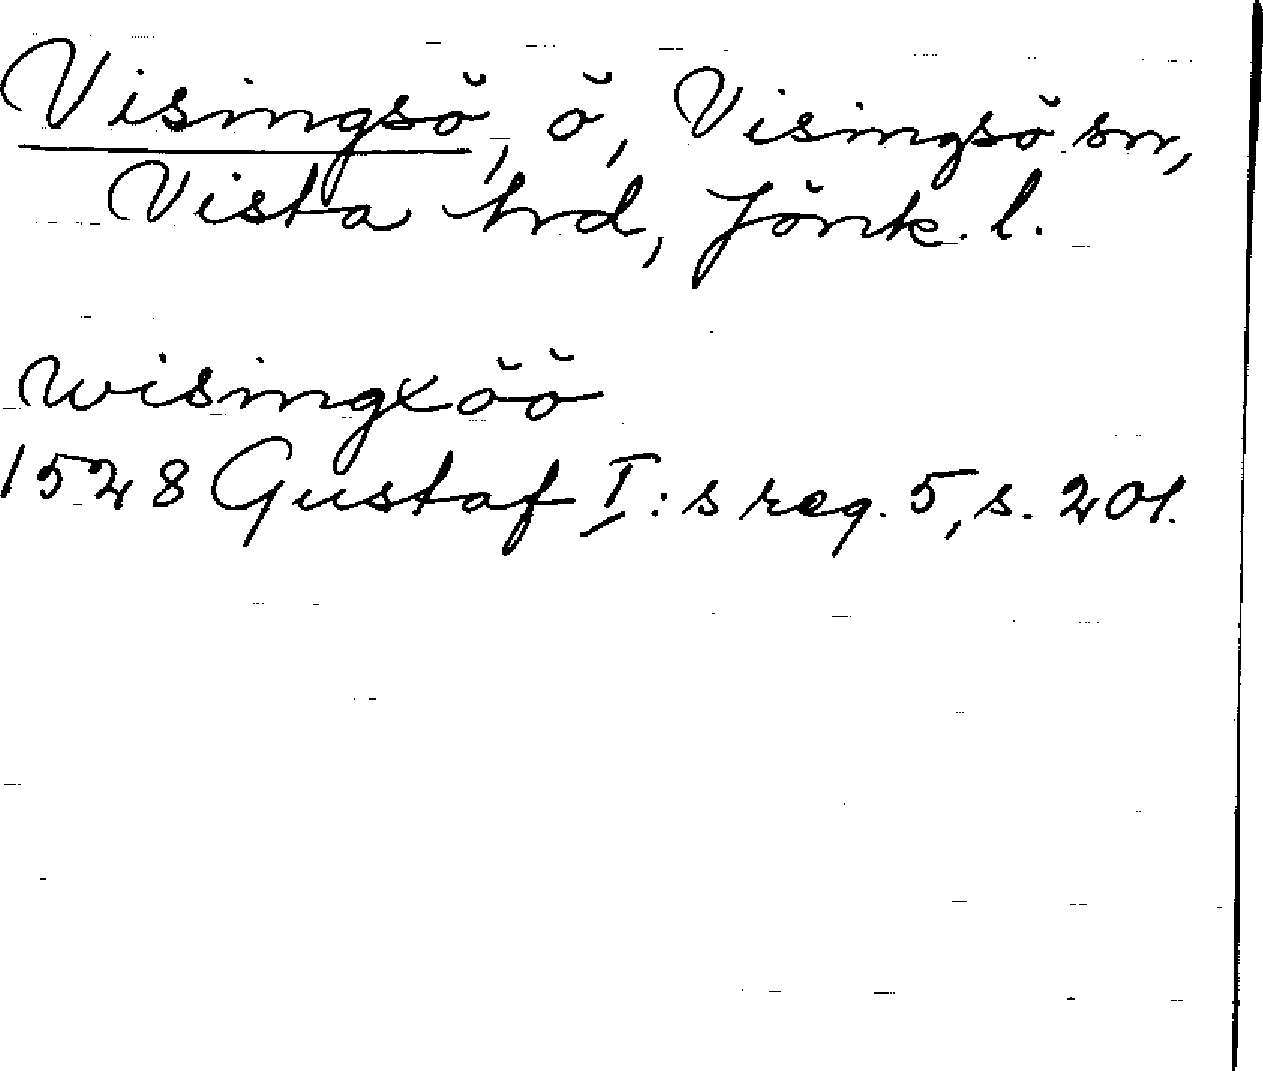 Visingsö, ö, Visingsö sn,
Vista hrd, Jönk. l.
wisingxöö
1528 Gustaf I:s reg. 5, s. 201.